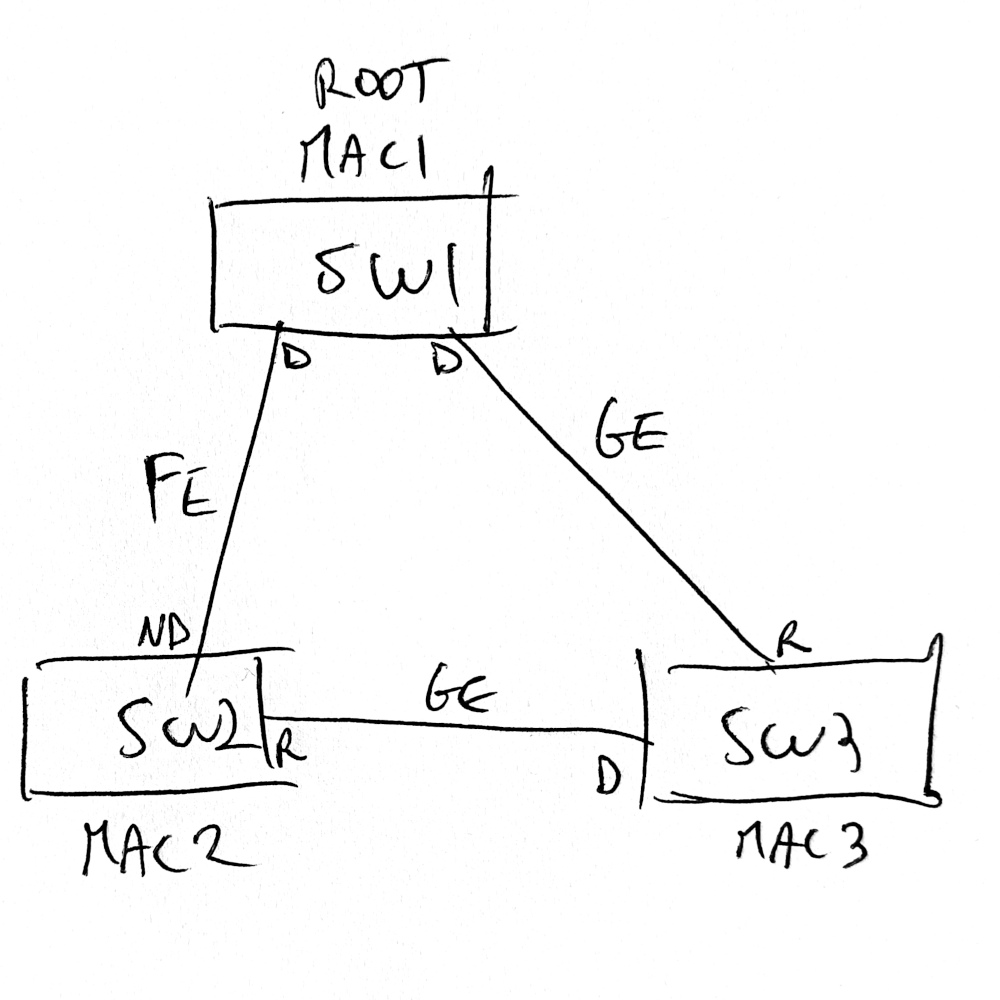 ROOT
MAC1
SW1
D
D
GE
FE
ND
R
SW2
R
GE
D
SW3
MAC2
MAC3